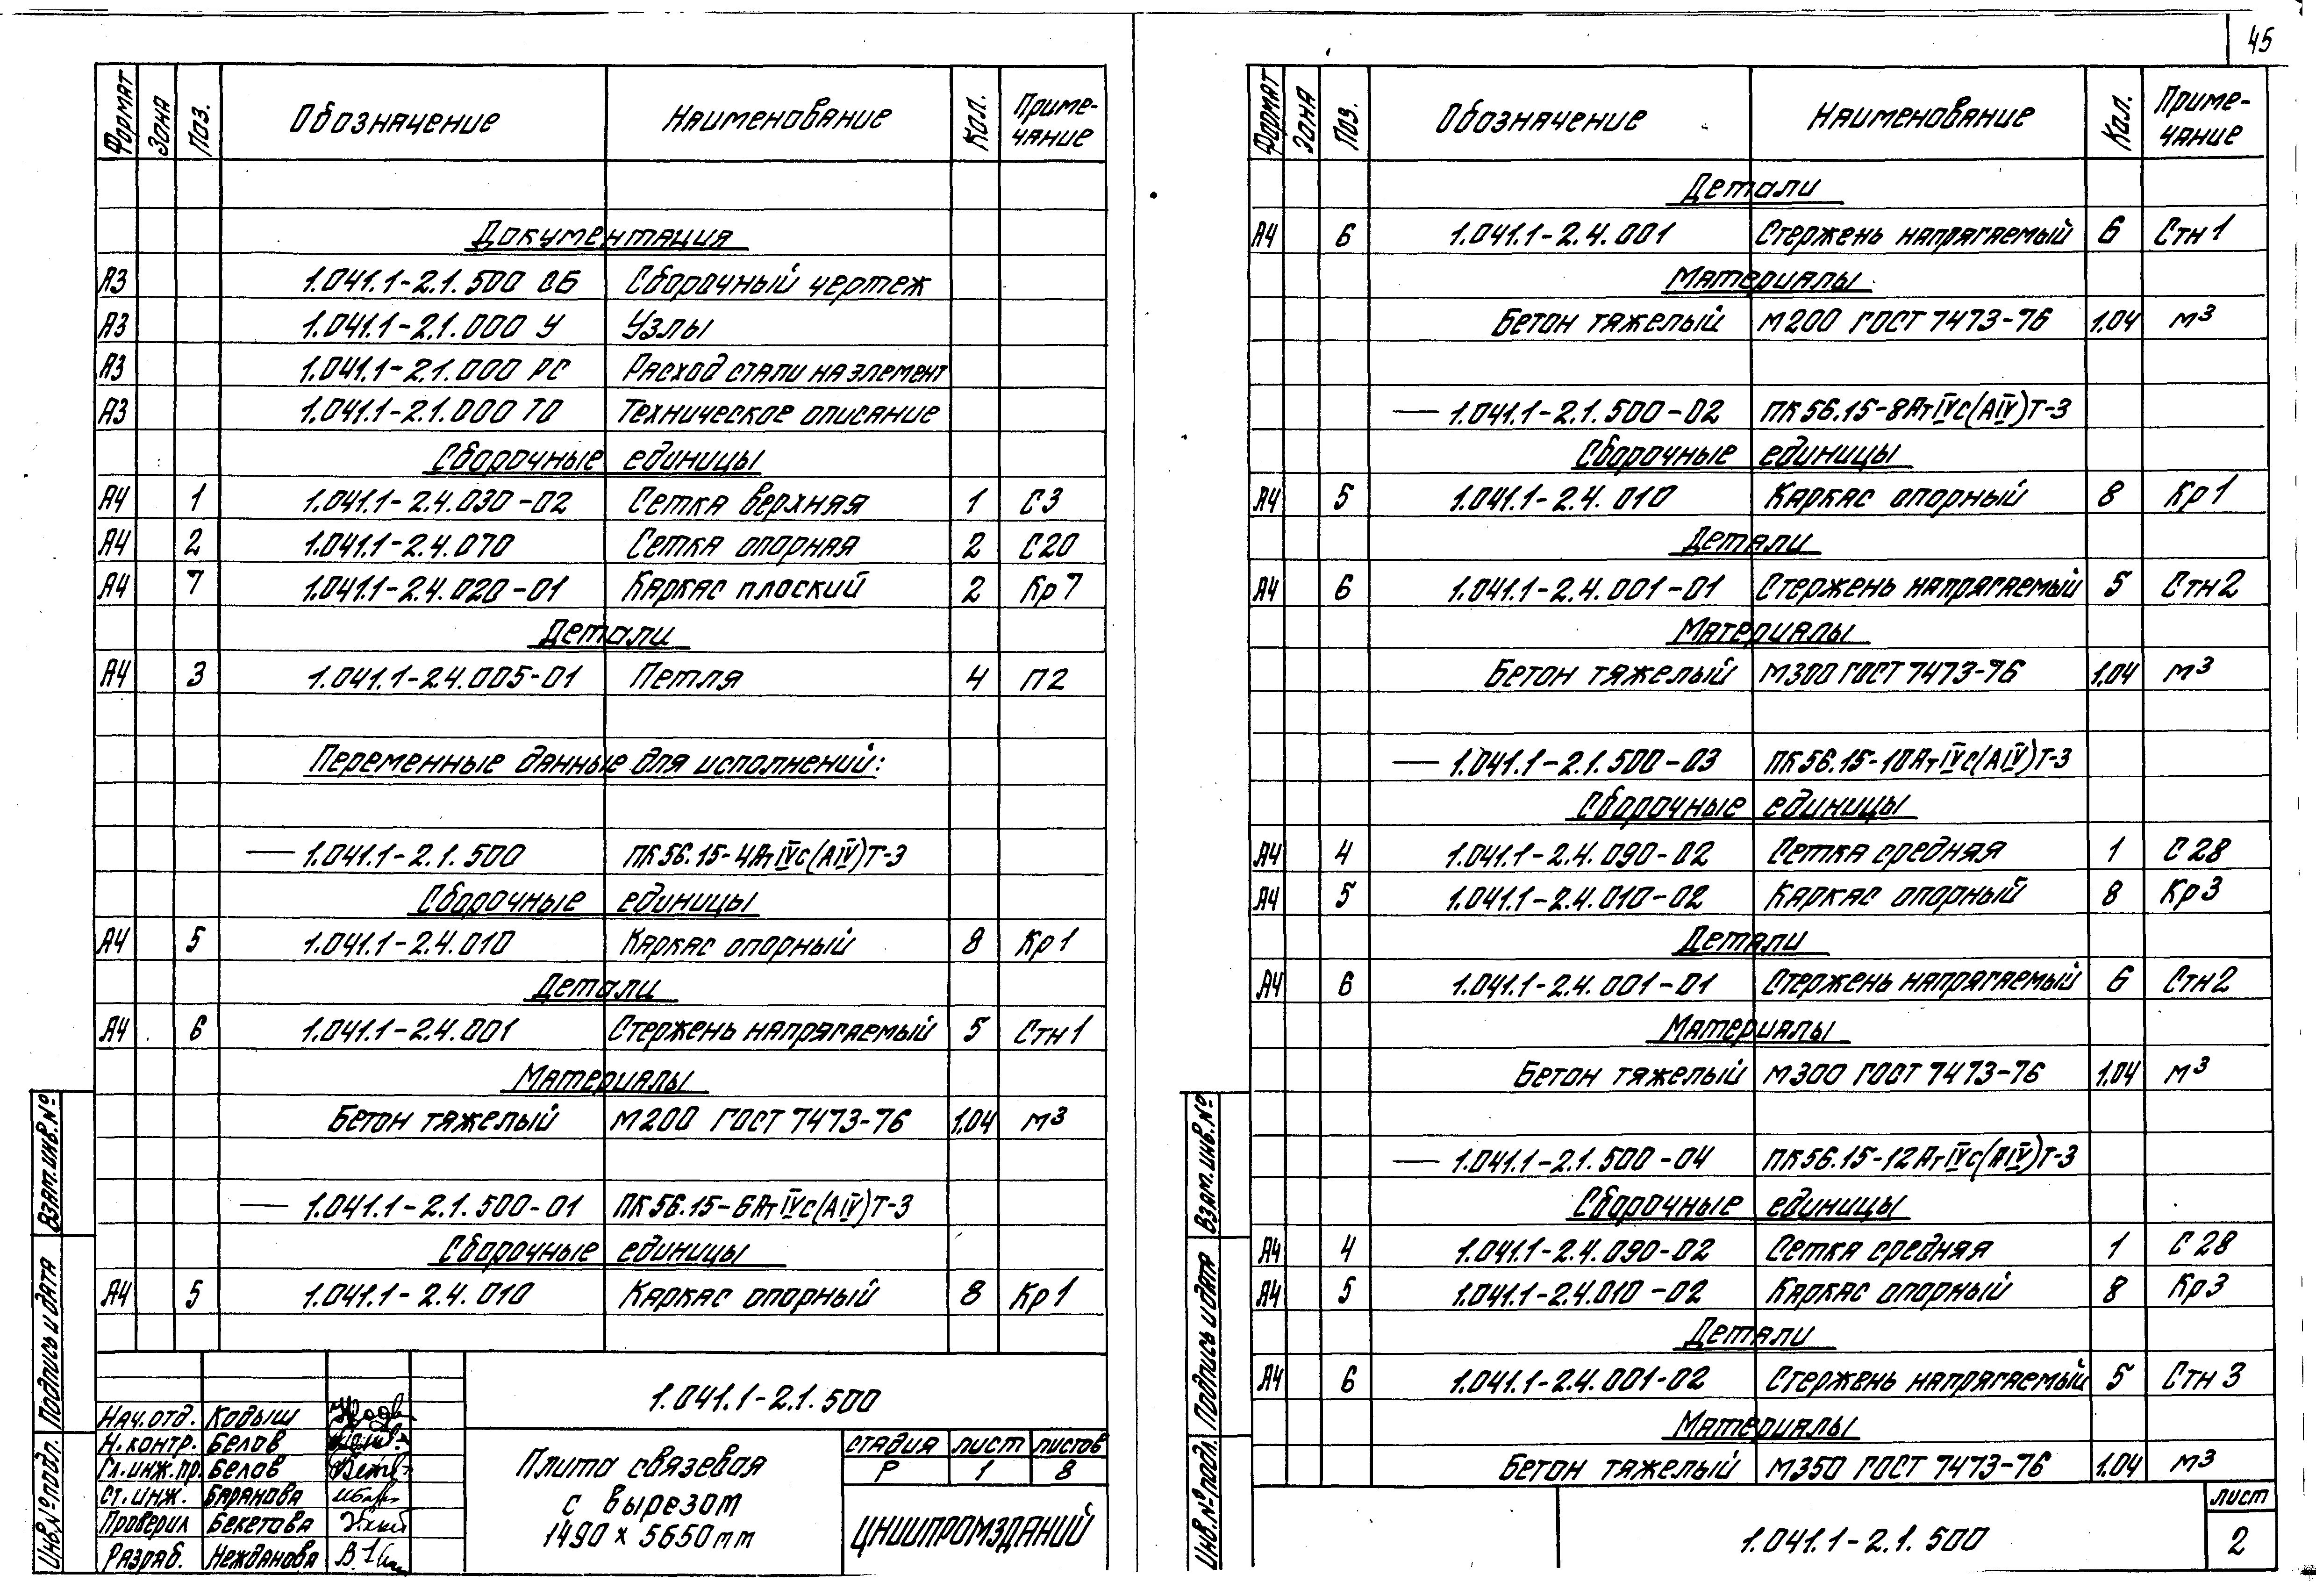 45
Формат Зона Поз. Обозначение Наименование Кол. Примечание
Документация
А3 1.041.1-2.1.500 СБ Сборочный чертеж
А3 1.041.1-2.1.000 У Узлы
А3 1.041.1-2.1.000 РС Расход стали на элемент
А3 1.041.1-2.1.000 ТО Техническое описание
Сборочные единицы
А4 1 1.041.1-2.4.030-02 Сетка верхняя 1 С3
А4 2 1.041.1-2.4.070 Сетка опорная 2 С20
А4 7 1.041.1-2.4.020-01 Каркас плоский 2 Кр7
Детали
А4 3 1.041.1-2.4.005-01 Петля 4 П2
Переменные данные для исполнений:
— 1.041.1-2.1.500 ПК56.15-4АтIVс(АIV)Т-3
Сборочные единицы
А4 5 1.041.1-2.4.010 Каркас опорный 8 Кр1
Детали
А4 6 1.041.1-2.4.001 Стержень напрягаемый 5 Стн1
Материалы
Бетон тяжелый М200 ГОСТ 7473-76 1.04 м³
— 1.041.1-2.1.500-01 ПК56.15-6АтIVс(АIV)Т-3
Сборочные единицы
А4 5 1.041.1-2.4.010 Каркас опорный 8 Кр1
Взам. инв. №
Подпись и дата
Инв. № подл.
1.041.1-2.1.500
Нач. отд. Кодыш
Н. контр. Белов
Гл. инж. пр. Белов
Ст. инж. Баранова
Проверил Бекетова
Разраб. Нежданова
Плита связевая
с вырезом
1490 х 5650 мм
стадия лист листов
Р 1 8
ЦНИИПРОМЗДАНИЙ
Формат Зона Поз. Обозначение Наименование Кол. Примечание
Детали
А4 6 1.041.1-2.4.001 Стержень напрягаемый 6 Стн1
Материалы
Бетон тяжелый М200 ГОСТ 7473-76 1.04 м³
— 1.041.1-2.1.500-02 ПК56.15-8АтIVс(АIV)Т-3
Сборочные единицы
А4 5 1.041.1-2.4.010 Каркас опорный 8 Кр1
Детали
А4 6 1.041.1-2.4.001-01 Стержень напрягаемый 5 Стн2
Материалы
Бетон тяжелый М300 ГОСТ 7473-76 1.04 м³
— 1.041.1-2.1.500-03 ПК56.15-10АтIVс(АIV)Т-3
Сборочные единицы
А4 4 1.041.1-2.4.090-02 Сетка средняя 1 С28
А4 5 1.041.1-2.4.010-02 Каркас опорный 8 Кр3
Детали
А4 6 1.041.1-2.4.001-01 Стержень напрягаемый 6 Стн2
Материалы
Бетон тяжелый М300 ГОСТ 7473-76 1.04 м³
— 1.041.1-2.1.500-04 ПК56.15-12АтIVс(АIV)Т-3
Сборочные единицы
А4 4 1.041.1-2.4.090-02 Сетка средняя 1 С28
А4 5 1.041.1-2.4.010-02 Каркас опорный 8 Кр3
Детали
А4 6 1.041.1-2.4.001-02 Стержень напрягаемый 5 Стн3
Материалы
Бетон тяжелый М350 ГОСТ 7473-76 1.04 м³
Взам. инв. №
Подпись и дата
Инв. № подл.
1.041.1-2.1.500
лист
2